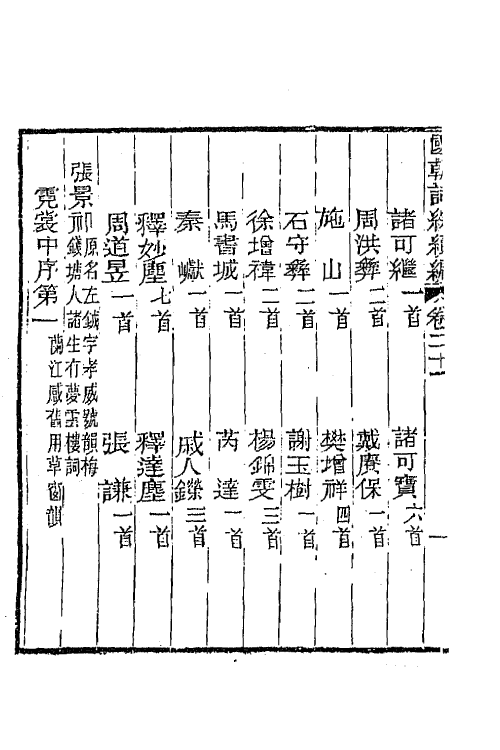 國朝詞綜續編 卷二十 一
諸可繼一首 諸可寶六首
周洪彝二首 戴賡保一首
施山一首 樊增祥四首
石守彝二首 謝玉樹一首
徐增禕二首 楊錦雯三首
馬書城一首 芮達一首
秦𪩘一首 戚人鑅三首
釋妙塵七首 釋達塵一首
周道昱一首 張謙一首
張景祁原名左鉞字孝威號韻梅錢塘人諸生有夢雲樓詞
霓裳中序第一 蘭江感舊用草窗韻